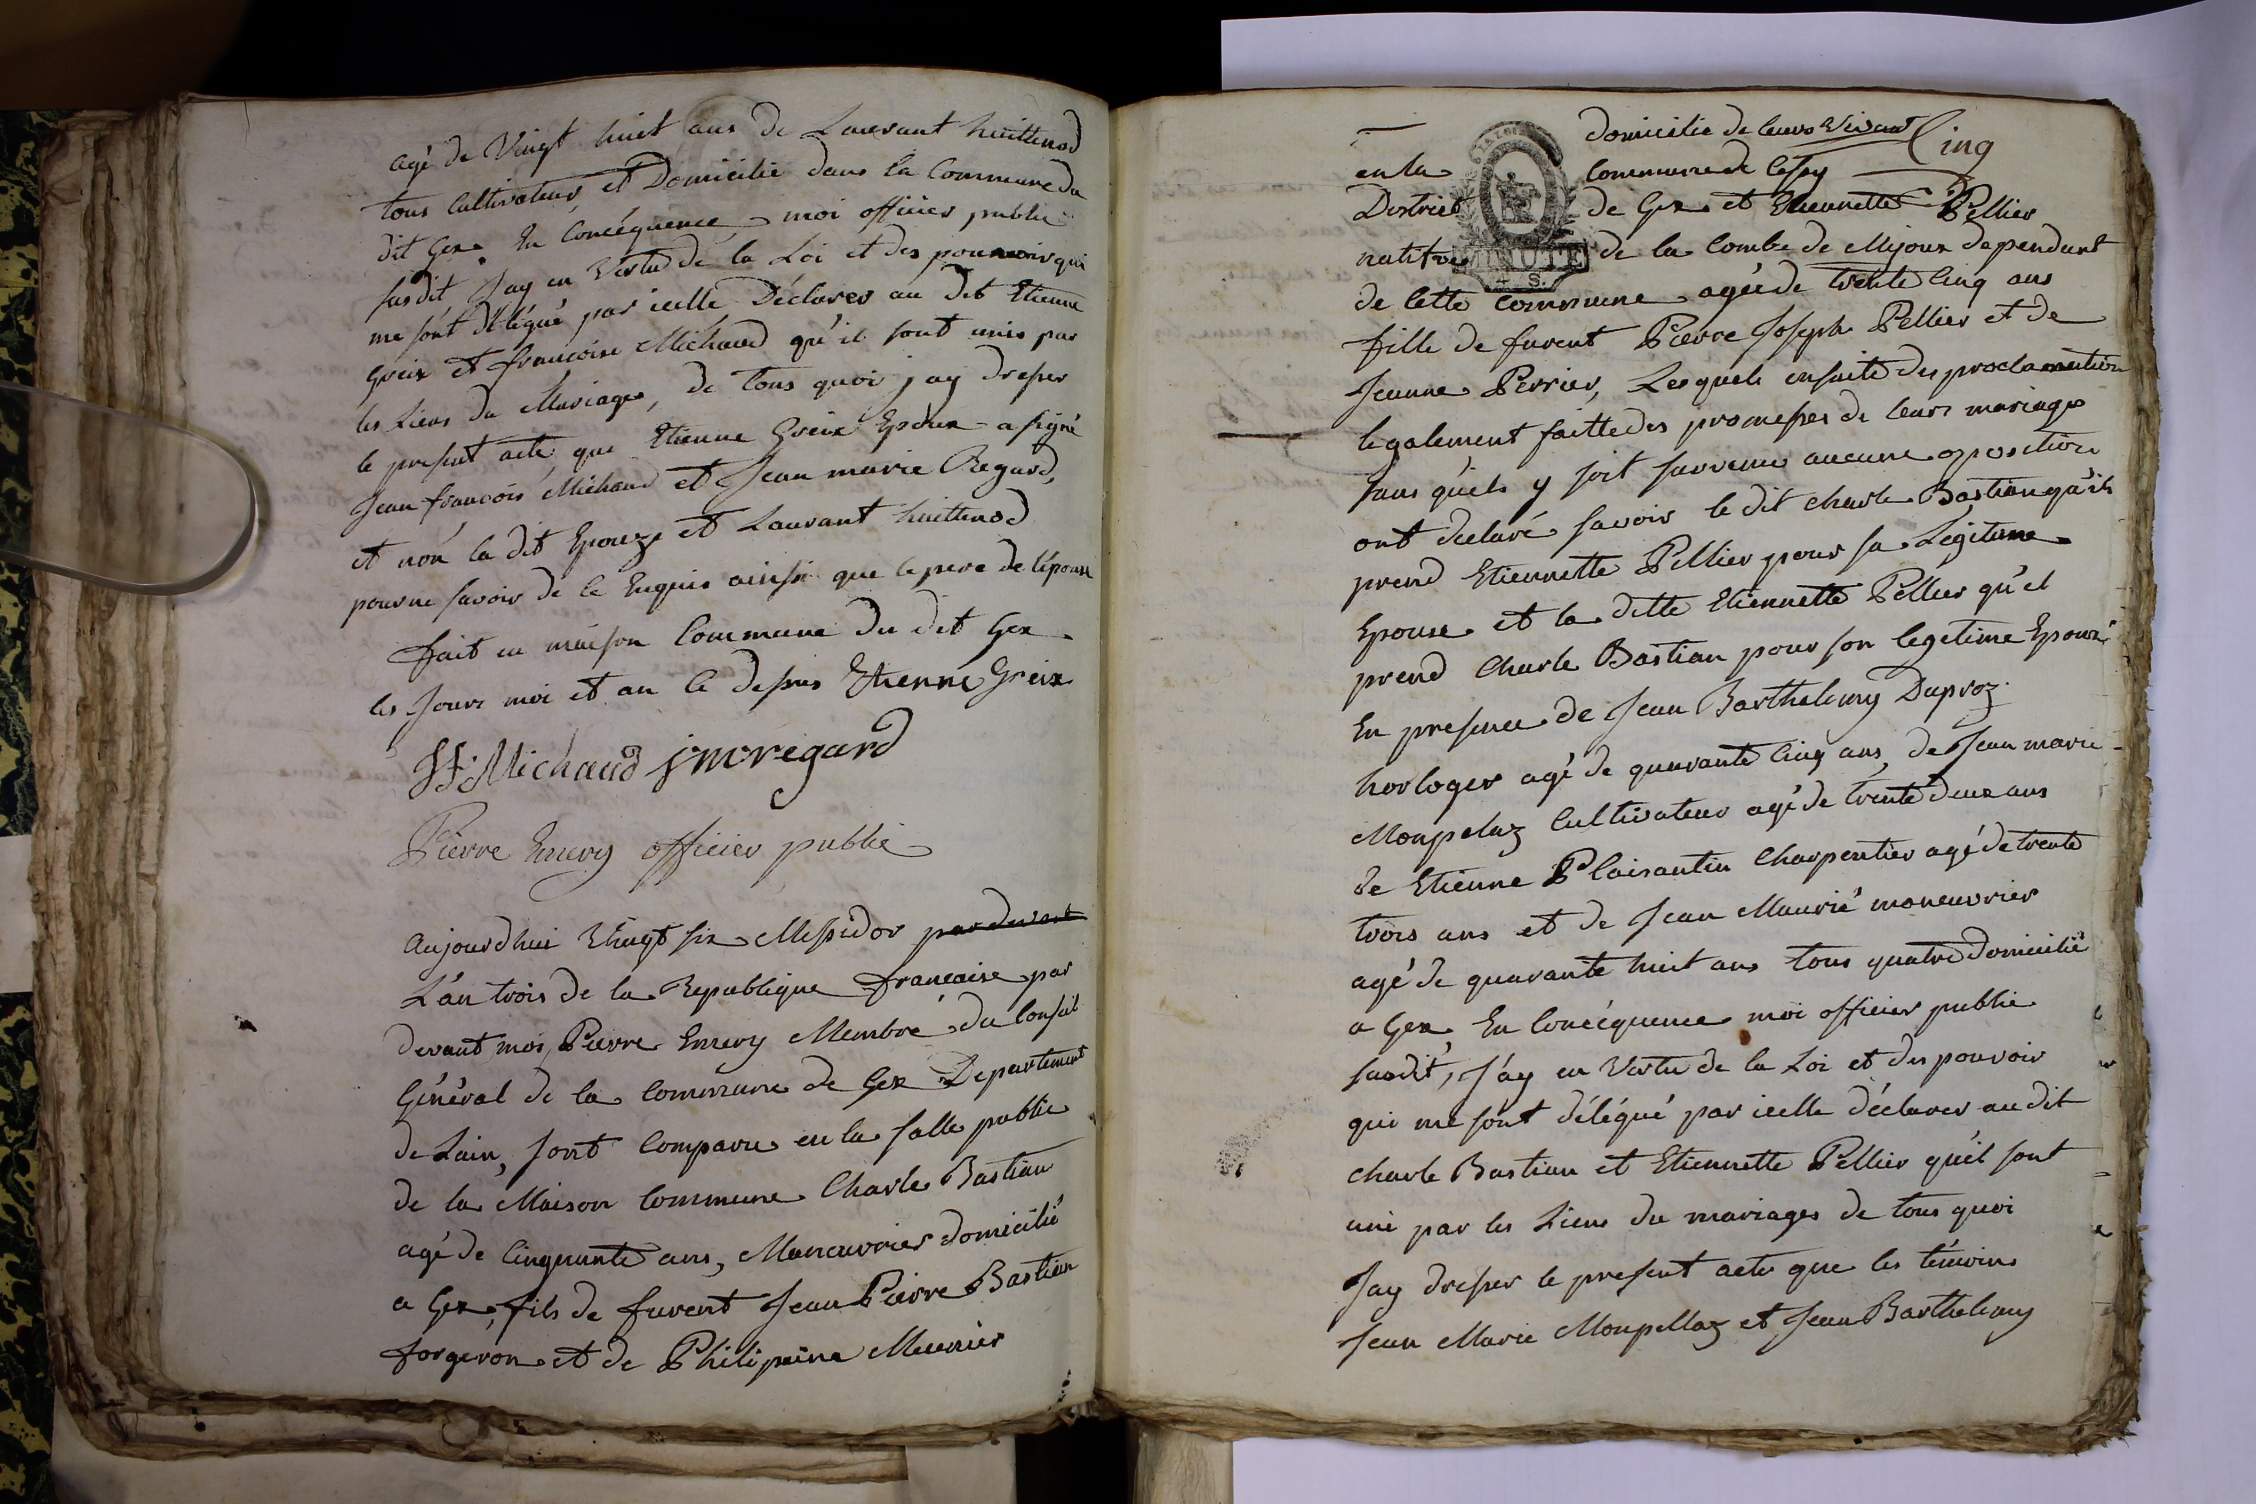 agé de Vingt huit ans de Laurant huittenod
tous Cultivateur, et Domicilié dans la Commune du
dit Gex. En Concéquence, moi officier public
susdit, J'ay en Vertu de la Loi et des pouvoir qui
me sont délégué par icelle Déclarer au dit Etienne
Greix et francoise Michaud qu'il sont unis par
les Liens du Mariage, de Tous quoi j'ay dresser
le present acte que Etienne Greix Epoux a signé
Jean francois Michaud et Jean marie Regard,
et non la dit Epouze et Laurant huittenod
pour ne savoir de ce Enquis ainsi que le pere de l'épouse
fait en maison Commune du dit Gex
les Jour moi et an ce dessus Etienne Greix
JF. Michaud jmregard
Pierre Emery officier public
Aujourd'hui Vhingt six Messidor par devant
L'an trois de la Republique francaise par
devant moi, Pierre Emery Membre du Conseil
Général de la Commune de Gex Departement
de Lain, sont Comparu en la salle public
de la Maison Commune Charle Bastian
agé de Cinquante ans, Maneuvrier domicilié
a Gex, fils de furent Jean Pierre Bastian
forgeron et de Philipaine Meunier
domicilie de leurs Vivant Cing
en la Commune de Cessy
District de Gex et Etiennette Pellier
native de la Combe de Mijoux dependant
MINUTE
4 S.
de Cette Commune agée de trente Cinq ans
fille de furent Pierre Joseph Pellier et de
Jeanne Perrier, Lesquels ensuite des proclamation
legalement faitte des promesses de leurs mariage
sans qu'ils y soit survenu aucune oposition
ont declaré savoir le dit Charle Bastian qu'il
prend Etiennette Pellier pour sa Légitime
Epouse et la ditte Etiennette Pellier qu'el
prend Charle Bastian pour son legetime Epouzé
En presence de Jean Barthelemy Duproz
horloger agé de quarante Cinq ans, de Jean marie
Monpelaz Cultivateur agé de trente deux ans
de Etienne Plaisantin Charpentier agé de trente
trois ans et de Jean Maurié moneuvrier
agé de quarante huit ans tous quatre domicilié
a Gex, En Concéquence moi officier public
susdit, J'ay en Vertu de la Loi et des pouvoir
qui me sont délégué par icelle déclarer au dit
Charle Bastian et Etiennette Pellier qu'il sont
uni par les Liens du mariages de tous quoi
J'ay dresser le present acte que les témoins
Jean Marie Monpellaz et Jean Barthelemy